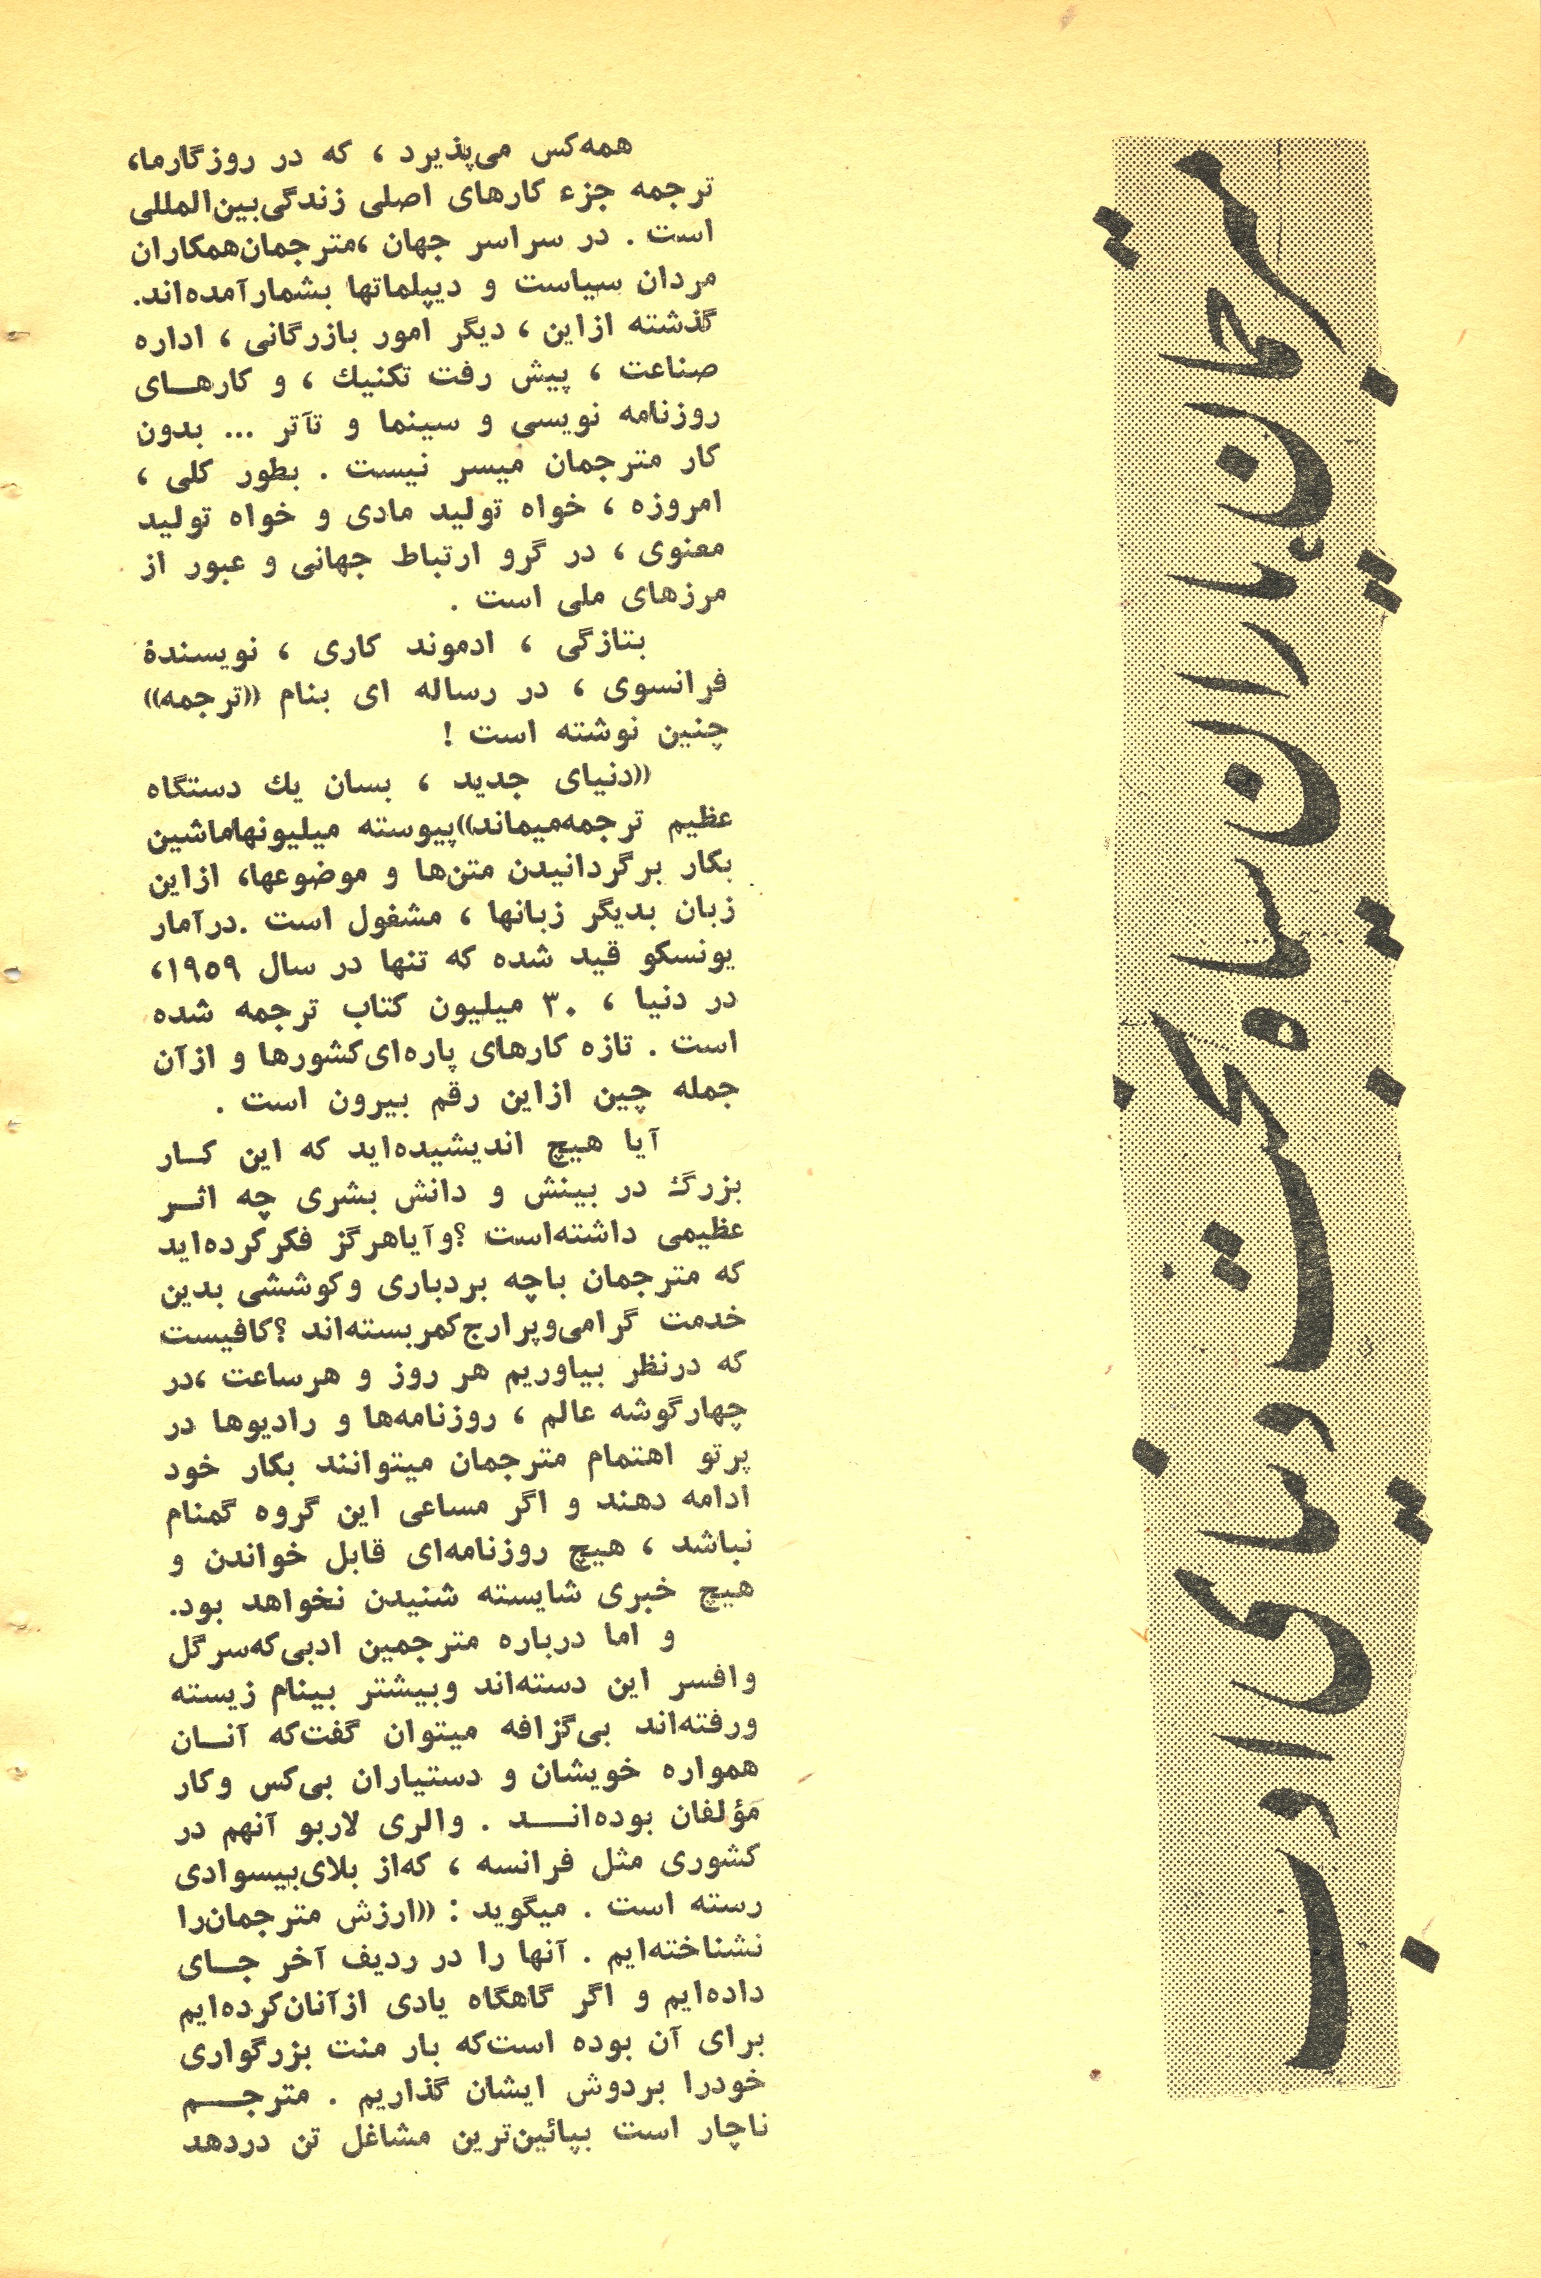 مترجمان، یاران سیاه بخت دنیای ادب
همه‌کس می‌پذیرد ، که در روزگارما،
ترجمه جزء کارهای اصلی زندگی‌بین‌المللی
است . در سراسر جهان ،مترجمان‌همکاران
مردان سیاست و دیپلماتها بشمارآمده‌اند.
گذشته ازاین ، دیگر امور بازرگانی ، اداره
صناعت ، پیش رفت تکنیك ، و کارهـای
روزنامه نویسی و سینما و تآتر ... بدون
کار مترجمان میسر نیست . بطور کلی ،
امروزه ، خواه تولید مادی و خواه تولید
معنوی ، در گرو ارتباط جهانی و عبور از
مرزهای ملی است .
بتازگی ، ادموند کاری ، نویسندهٔ
فرانسوی ، در رساله ای بنام ((ترجمه))
چنین نوشته است !
((دنیای جدید ، بسان یك دستگاه
عظیم ترجمه‌میماند))پیوسته میلیونهاماشین
بکار برگردانیدن متن‌ها و موضوعها، ازاین
زبان بدیگر زبانها ، مشغول است .درآمار
یونسکو قید شده که تنها در سال ۱۹۵۹،
در دنیا ، ۳۰ میلیون کتاب ترجمه شده
است . تازه کارهای پاره‌ای‌کشورها و ازآن
جمله چین ازاین رقم بیرون است .
آیا هیچ اندیشیده‌اید که این کـار
بزرگ در بینش و دانش بشری چه اثـر
عظیمی داشته‌است ؟وآیاهرگز فکرکرده‌اید
که مترجمان باچه بردباری وکوششی بدین
خدمت گرامی‌وپرارج‌کمربسته‌اند ؟کافیست
که درنظر بیاوریم هر روز و هرساعت ،در
چهارگوشه عالم ، روزنامه‌ها و رادیوها در
پرتو اهتمام مترجمان میتوانند بکار خود
ادامه دهند و اگر مساعی این گروه گمنام
نباشد ، هیچ روزنامه‌ای قابل خواندن و
هیچ خبری شایسته شنیدن نخواهد بود.
و اما درباره مترجمین ادبی‌که‌سرگل
وافسر این دسته‌اند وبیشتر بینام زیسته
ورفته‌اند بی‌گزافه میتوان گفت‌که آنـان
همواره خویشان و دستیاران بی‌کس وکار
مؤلفان بوده‌انـد . والری لاربو آنهم در
کشوری مثل فرانسه ، که‌از بلای‌بیسوادی
رسته است . میگوید : ((ارزش مترجمان‌را
نشناخته‌ایم . آنها را در ردیف آخر جـای
داده‌ایم و اگر گاهگاه یادی ازآنان‌کرده‌ایم
برای آن بوده است‌که بار منت بزرگواری
خودرا بردوش ایشان گذاریم . مترجـم
ناچار است بپائین‌ترین مشاغل تن دردهد